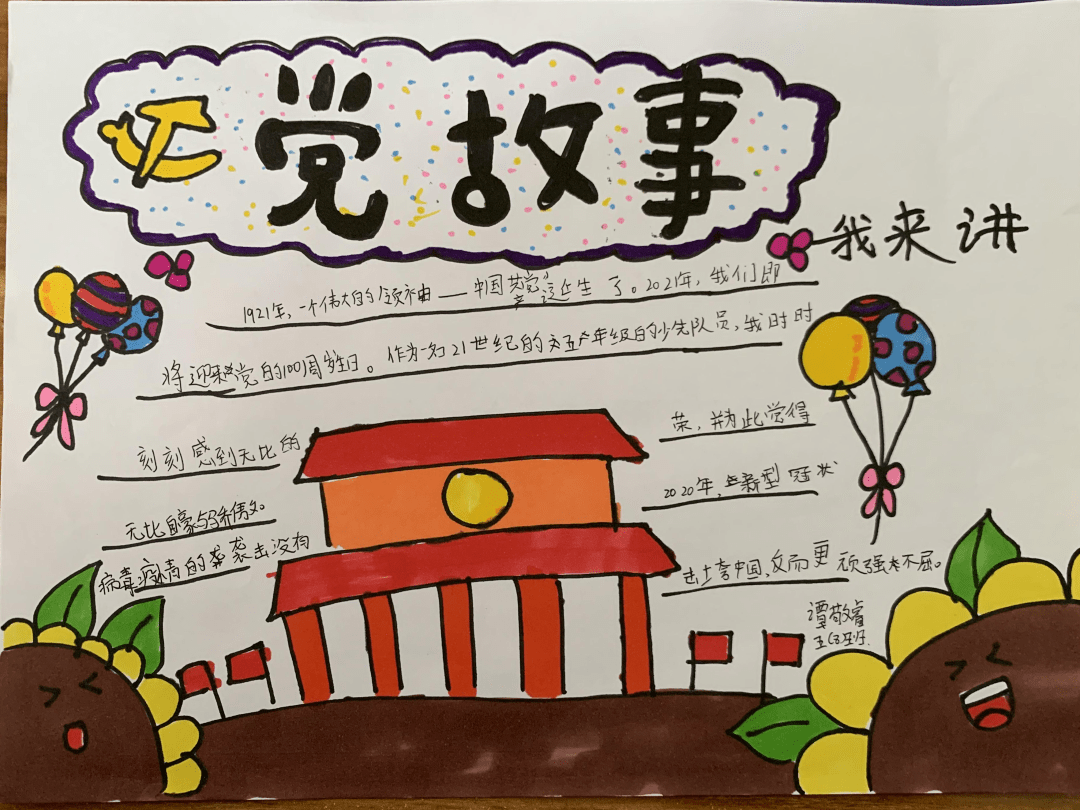 党故事
我来讲
1921年,一个伟大的领袖——中国共产党诞生了。2021年,我们即
将迎来党的100周岁生日。作为一名21世纪的五年级的少先队员,我时时
刻刻感到无比的
荣,并为此觉得
无比自豪与骄傲。
2020年,新型冠状
病毒疫情的袭击没有
击垮中国,反而更顽强不屈。
谭敬睿